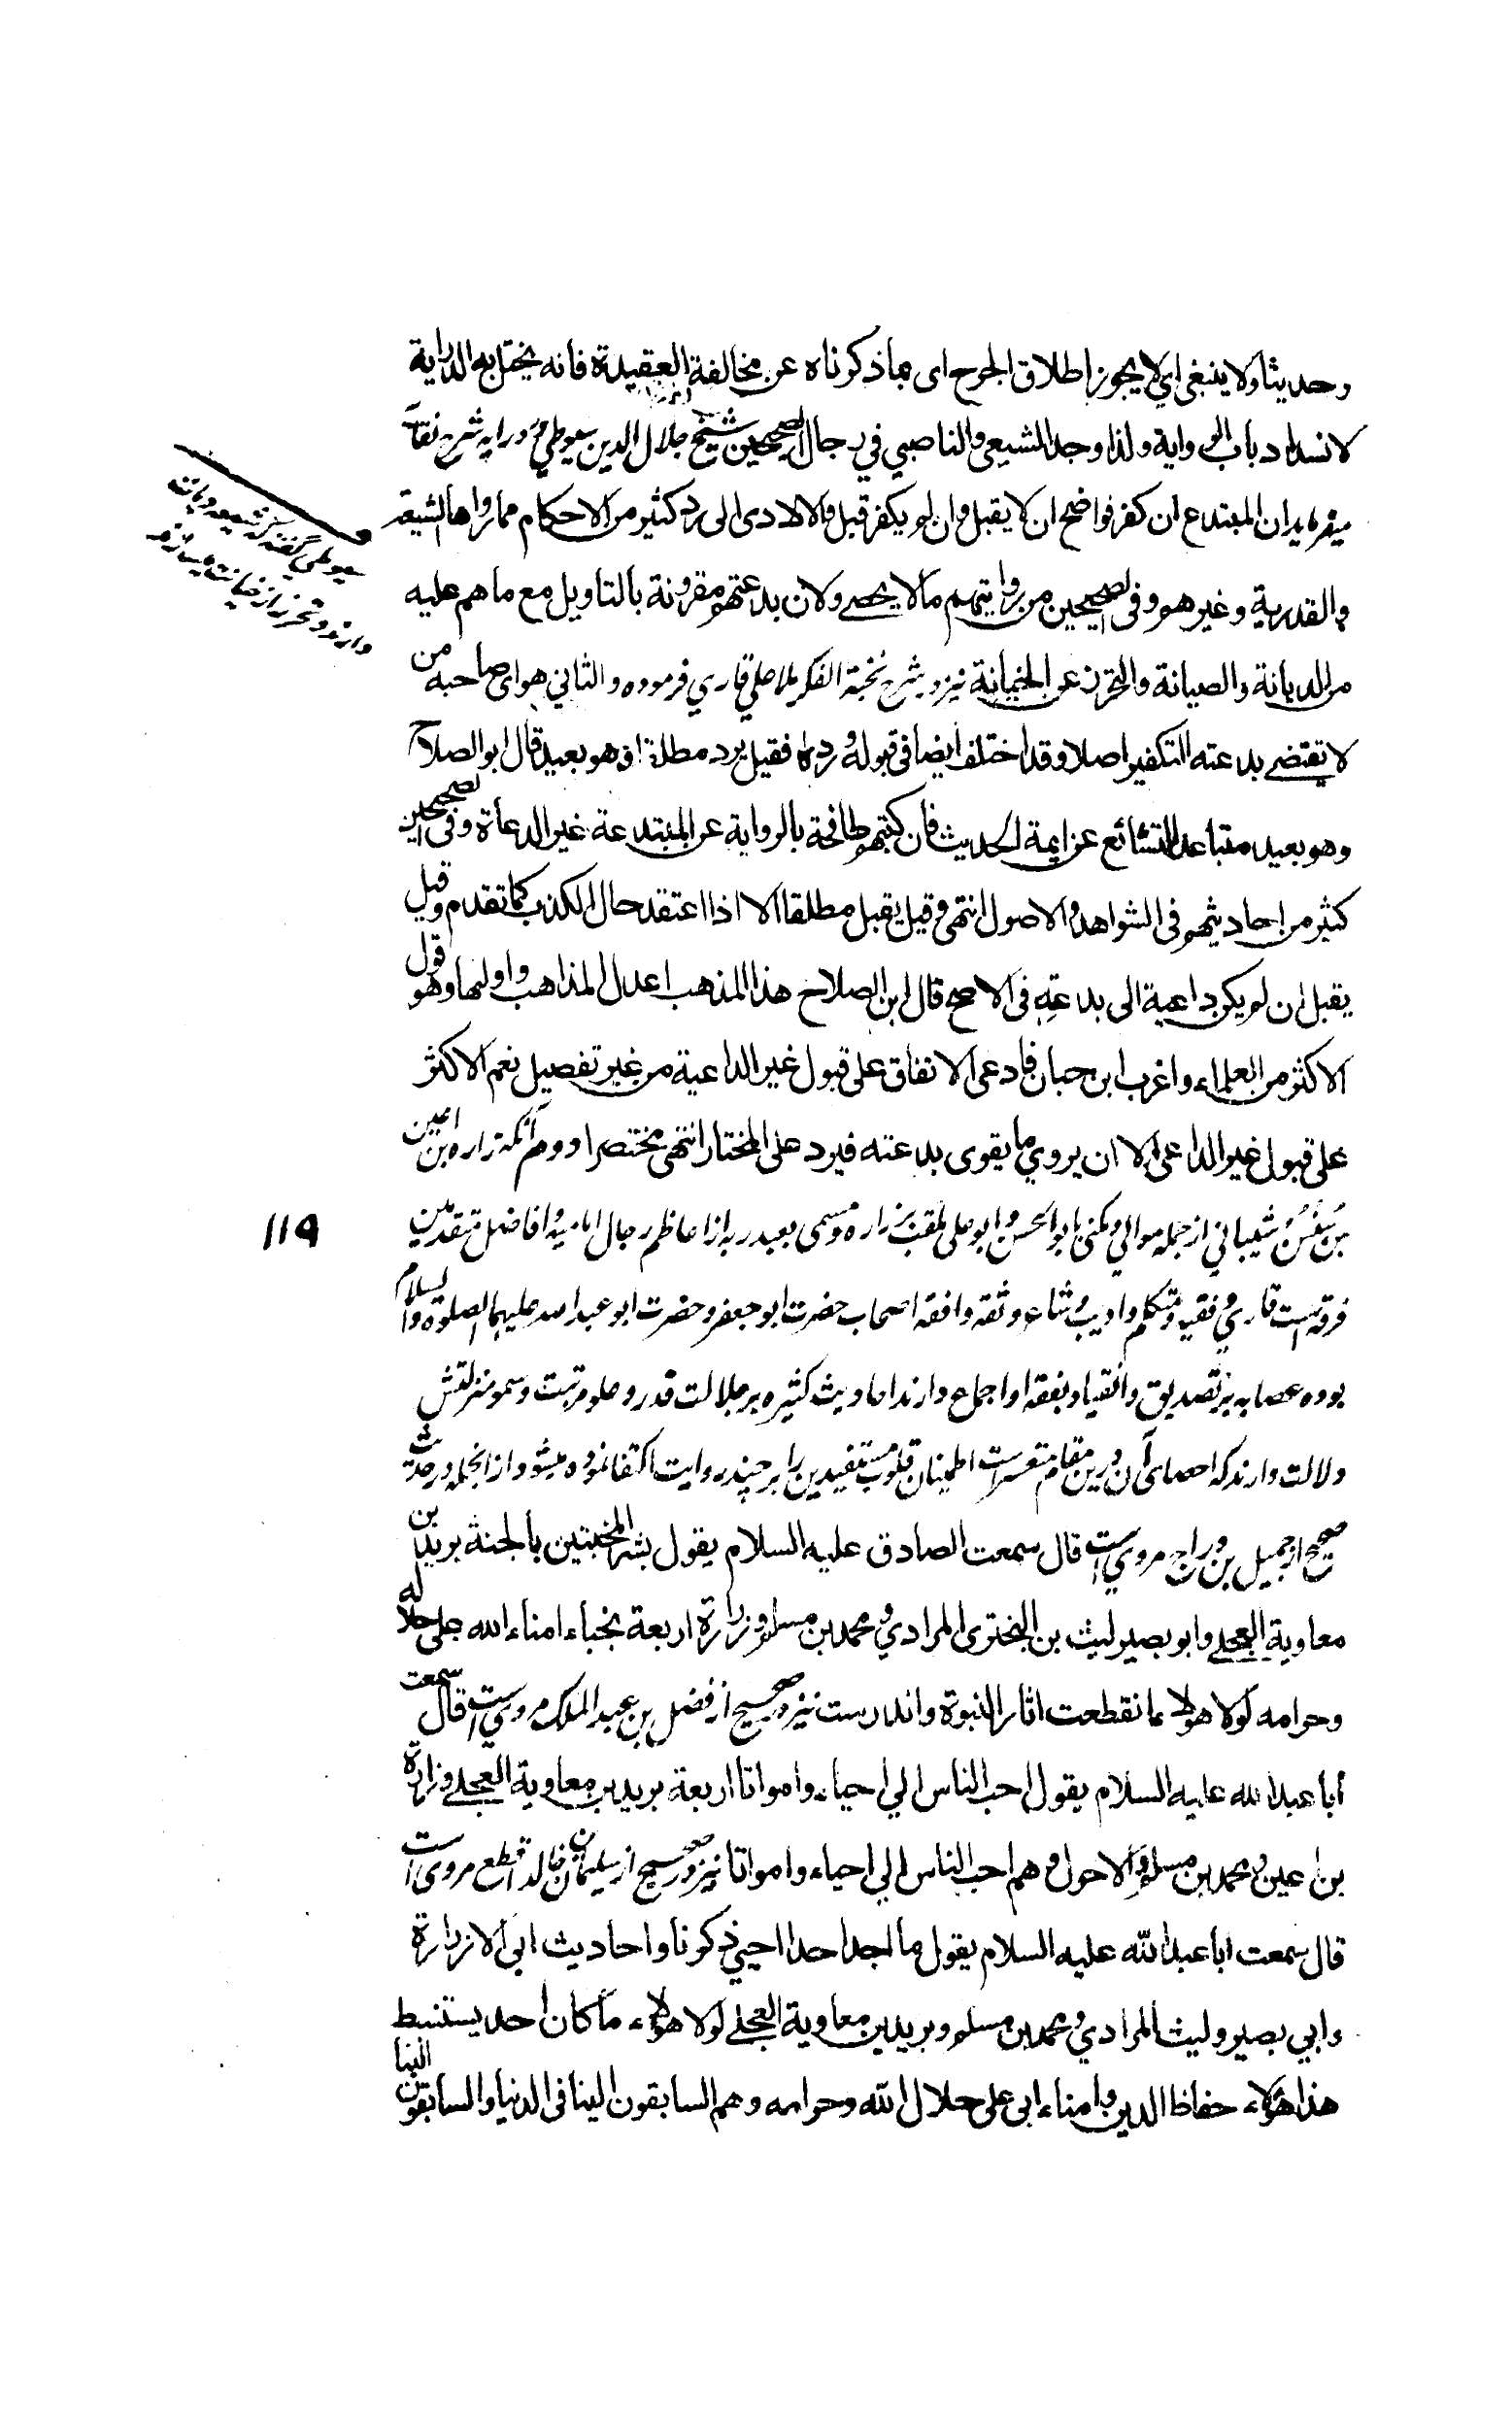 وحديثا ولا ينبغي اي لا يجوز اطلاق الجرح اى بما ذكرناه عن مخالفة العقيدة فانه يختل به الدراية
لانسداد باب الرواية ولذا وجد الشيعي والناصبي في رجال الصحيحين شيخ جلال الدين سيوطي در شرح نقاية
ميفرمايد ان المبتدع ان كفر فواضح ان لا يقبل وان لم يكفر قبل والا لادى الى رد كثير من الاحكام مما رواها الشيعة
والقدرية وغيرهم وفى الصحيحين من روايتهم ما لا يحصے ولان بدعتهم مقرونة بالتاويل مع ما هم عليه
من الديانة والصيانة والتحرز عن الخيانة نيز در شرح نخبة الفكر ملا علي قاري فرموده والثاني هو اى صاحبه من
لا تقتضے بدعته التكفير اصلا وقد اختلف ايضا فى قبوله ورده فقيل يرد مطلقا وهو بعيد قال ابو الصلاح
وهو بعيد متباعد للشائع عن ايمة الحديث فان كتبهم طافحة بالرواية عن المبتدعة غير الدعاة وفى الصحيحين
كثير من احاديثهم فى الشواهد والاصول انتهى وقيل يقبل مطلقا الا اذا اعتقد حال الكذب كما تقدم وقيل
يقبل ان لم يكن داعية الى بدعته فى الاصح قال ابن الصلاح هذا المذهب اعدل المذاهب واولها وهو قول
الاكثر من العلماء واغرب ابن حبان فادعى الاتفاق على قبول غير الداعية من غير تفصيل نعم الاكثر
على قبول غير الداعى الا ان يروي ما يقوى بدعته فيرد على المختار انتهى مختصرا دوم آنكه زراره بن اعين
بن سنسن شيباني از جمله موالي ومكنى بابو الحسن وابو على ملقب بزراره ومسمى بعبد ربه از اعاظم رجال اماميه وافاضل متقدمين
فرقه است قاري وفقيه ومتكلم واديب وشاعر وثقه وافقه اصحاب حضرت ابو جعفر وحضرت ابو عبد الله عليهما الصلوة والسلام
بوده عصابه بر تصديق وانقياد بفقه او اجماع دارند احاديث كثيره بر جلالت قدر وعلو مرتبت وسمو منزلتش
دلالت دارند كه احصاى آن درين مقام متعسر است اطمينان قلوب مستفيدين را بر چند روايت اكتفا نموده ميشود ازانجمله در حديث
صحيح از جميل بن دراج مروي است قال سمعت الصادق عليه السلام يقول بشر المخبتين بالجنة بريد بن
معاوية العجلے وابو بصير ليث بن البخترى المرادي ومحمد بن مسلم وزرارة اربعة نجباء امناء الله على حلاله
وحرامه لولا هولاء ما نقطعت اثار النبوة واندرست نيز در صحيح از فضل بن عبد الملك مروي است قال سمعت
ابا عبد الله عليه السلام يقول احب الناس الي احياء وامواتا اربعة بريد بن معاوية العجلے وزرارة
بن اعين ومحمد بن مسلم والاحول وهم احب الناس الي احياء وامواتا نيز در صحيح از سليمان بن خالد اقطع مروى است
قال سمعت ابا عبد الله عليه السلام يقول ما اجد احدا احيي ذكرنا واحاديث ابى الا زرارة
وابي بصير وليث المرادي ومحمد بن مسلم وبريد بن معاوية العجلے لولا هولاء ما كان احد يستنبط
هذا هؤلاء حفاظ الدين وامناء ابى على حلال الله وحرامه وهم السابقون الينا فى الدنيا والسابقون الينا
سيوطي گفته كه شيعه ديانت
دارند وتحرز از خيانت
١١٩